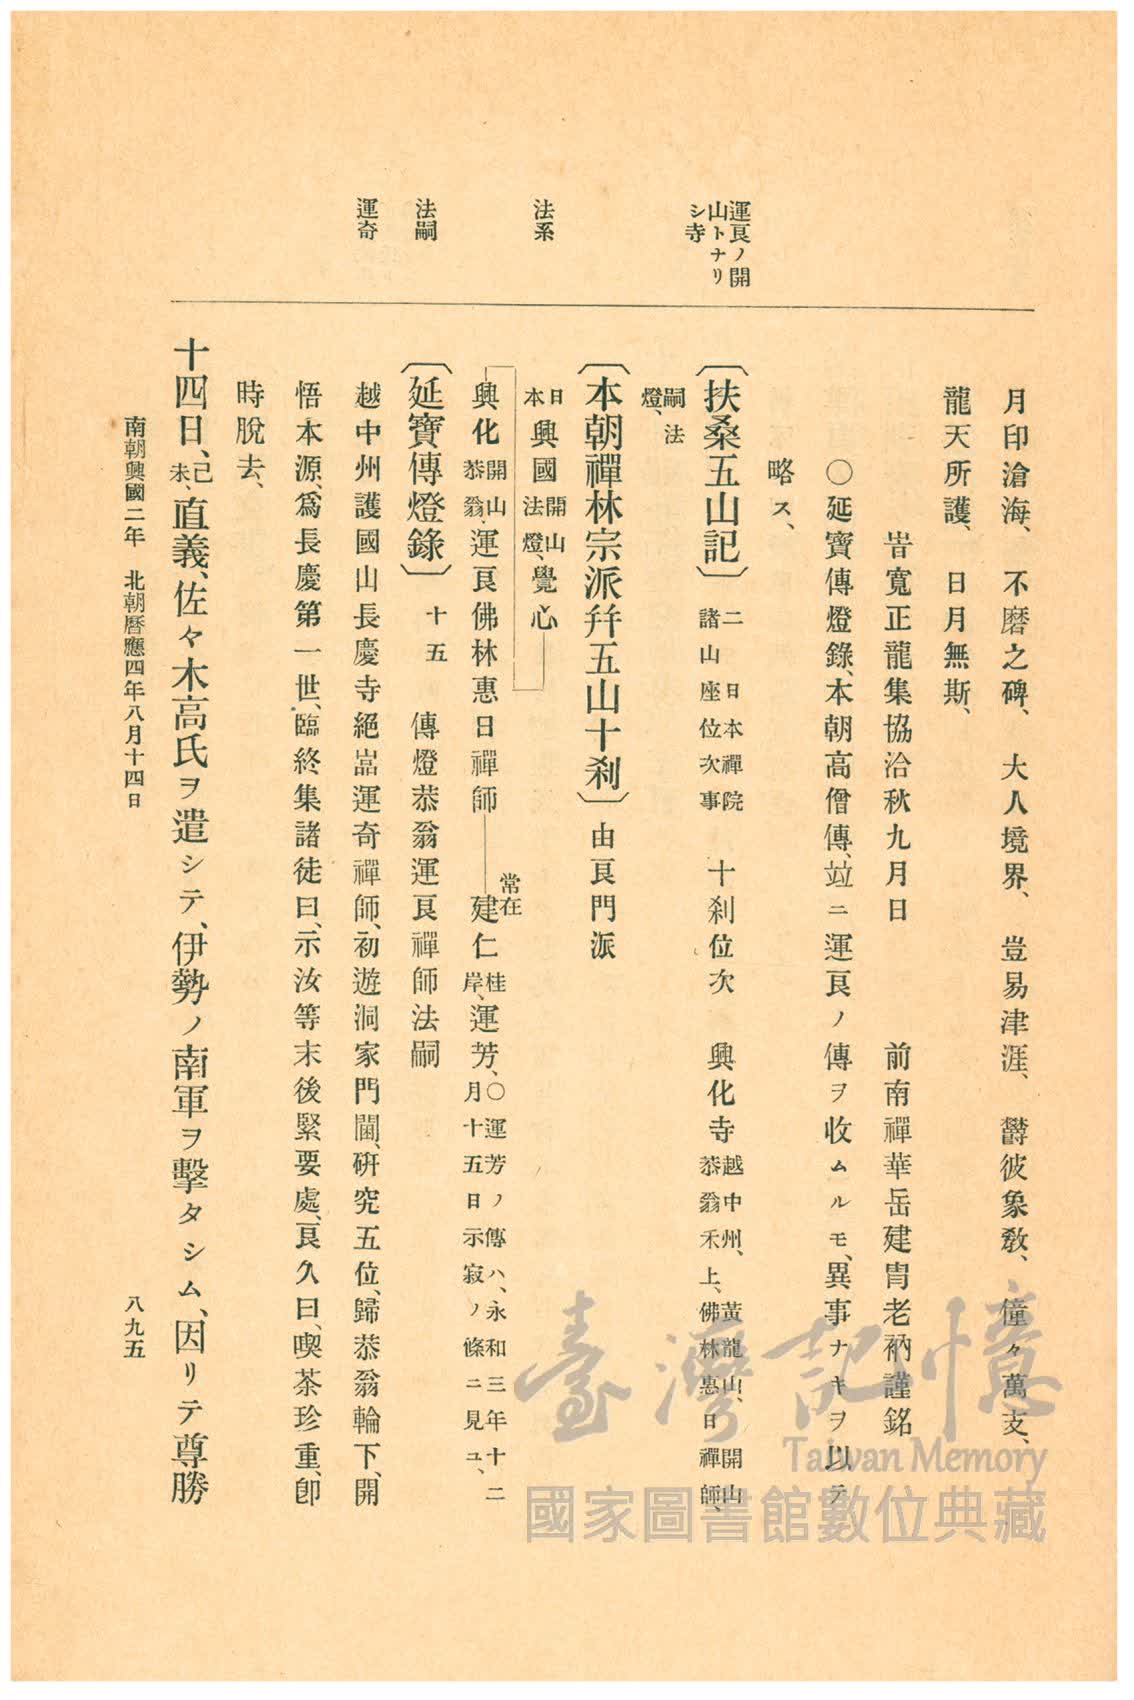 運良ノ開
山トナリ
シ寺
法系
法嗣
運奇
月印滄海、不磨之碑、大人境界、豈易津涯、欝彼象敎、僮々萬支、
龍天所護、日月無斯、
旹寬正龍集協洽秋九月日　前南禪華岳建冑老衲謹銘
〇延寶傳燈錄、本朝高僧傳、竝ニ運良ノ傳ヲ收ムルモ、異事ナキヲ以テ
略ス、
〔扶桑五山記〕二 日本禪院諸山座位次事　十刹位次　興化寺 越中州、黃龍山、開山恭翁禾上、佛林惠日禪師、
嗣法燈、
〔本朝禪林宗派幷五山十刹〕由良門派
日本 興國 開山法燈、覺心
興化 開山恭翁、運良佛林惠日禪師 常在 建仁 桂岸、運芳、〇運芳ノ傳ハ、永和三年十二月十五日示寂ノ條ニ見ユ、
〔延寶傳燈錄〕十五　傳燈恭翁運良禪師法嗣
越中州護國山長慶寺絕嵓運奇禪師、初遊洞家門閫、硏究五位、歸恭翁輪下、開
悟本源、爲長慶第一世、臨終集諸徒曰、示汝等末後緊要處、良久曰、喫茶珍重、卽
時脫去、
十四日、己未、直義、佐々木高氏ヲ遣シテ、伊勢ノ南軍ヲ擊タシム、因リテ尊勝
南朝興國二年　北朝曆應四年八月十四日
八九五
臺灣記憶
Taiwan Memory
國家圖書館數位典藏